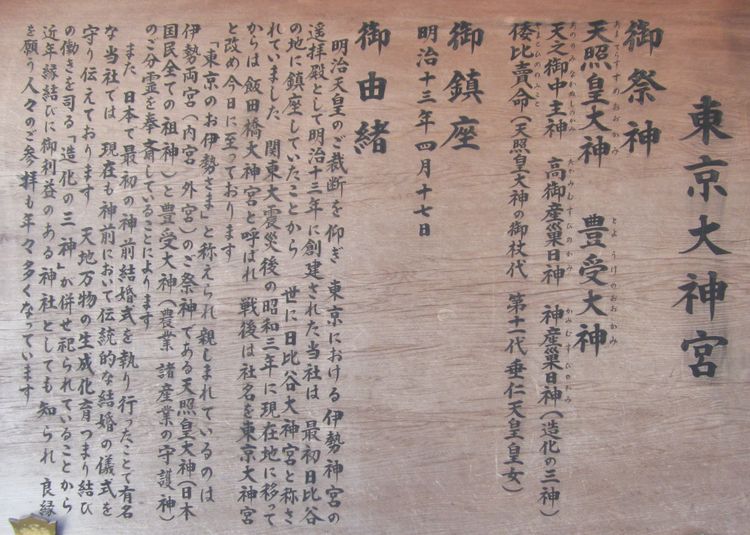 東京大神宮
御祭神
天照皇大神　豊受大神
あまてらすすめおおかみ　とようけのおおかみ
天之御中主神　高御産巣日神　神産巣日神（造化の三神）
あめのみなかぬしのかみ　たかみむすびのかみ　かみむすびのかみ
倭比賣命（天照皇大神の御杖代　第十一代垂仁天皇皇女）
やまとひめのみこと
御鎮座
明治十三年四月十七日
御由緒
明治天皇のご裁断を仰ぎ東京における伊勢神宮の
遥拝殿として明治十三年に創建された当社は　最初日比谷
の地に鎮座していたことから　世に日比谷大神宮と称さ
れていました　関東大震災後の昭和三年に現在地に移って
からは飯田橋大神宮と呼ばれ　戦後は社名を東京大神宮
と改め今日に至っております
「東京のお伊勢さま」と称えられ親しまれているのは
伊勢両宮（内宮　外宮）のご祭神である天照皇大神（日本
国民全ての祖神）と豊受大神（農業　諸産業の守護神）
のご分霊を奉斎していることによります
また　日本で最初の神前結婚式を執り行ったことで有名
な当社では　現在も神前において伝統的な結婚の儀式を
守り伝えております　天地万物の生成化育つまり結び
の働きを司る「造化の三神」が併せ祀られていることから
近年縁結びに御利益のある神社としても知られ　良縁
を願う人々のご参拝も年々多くなっています